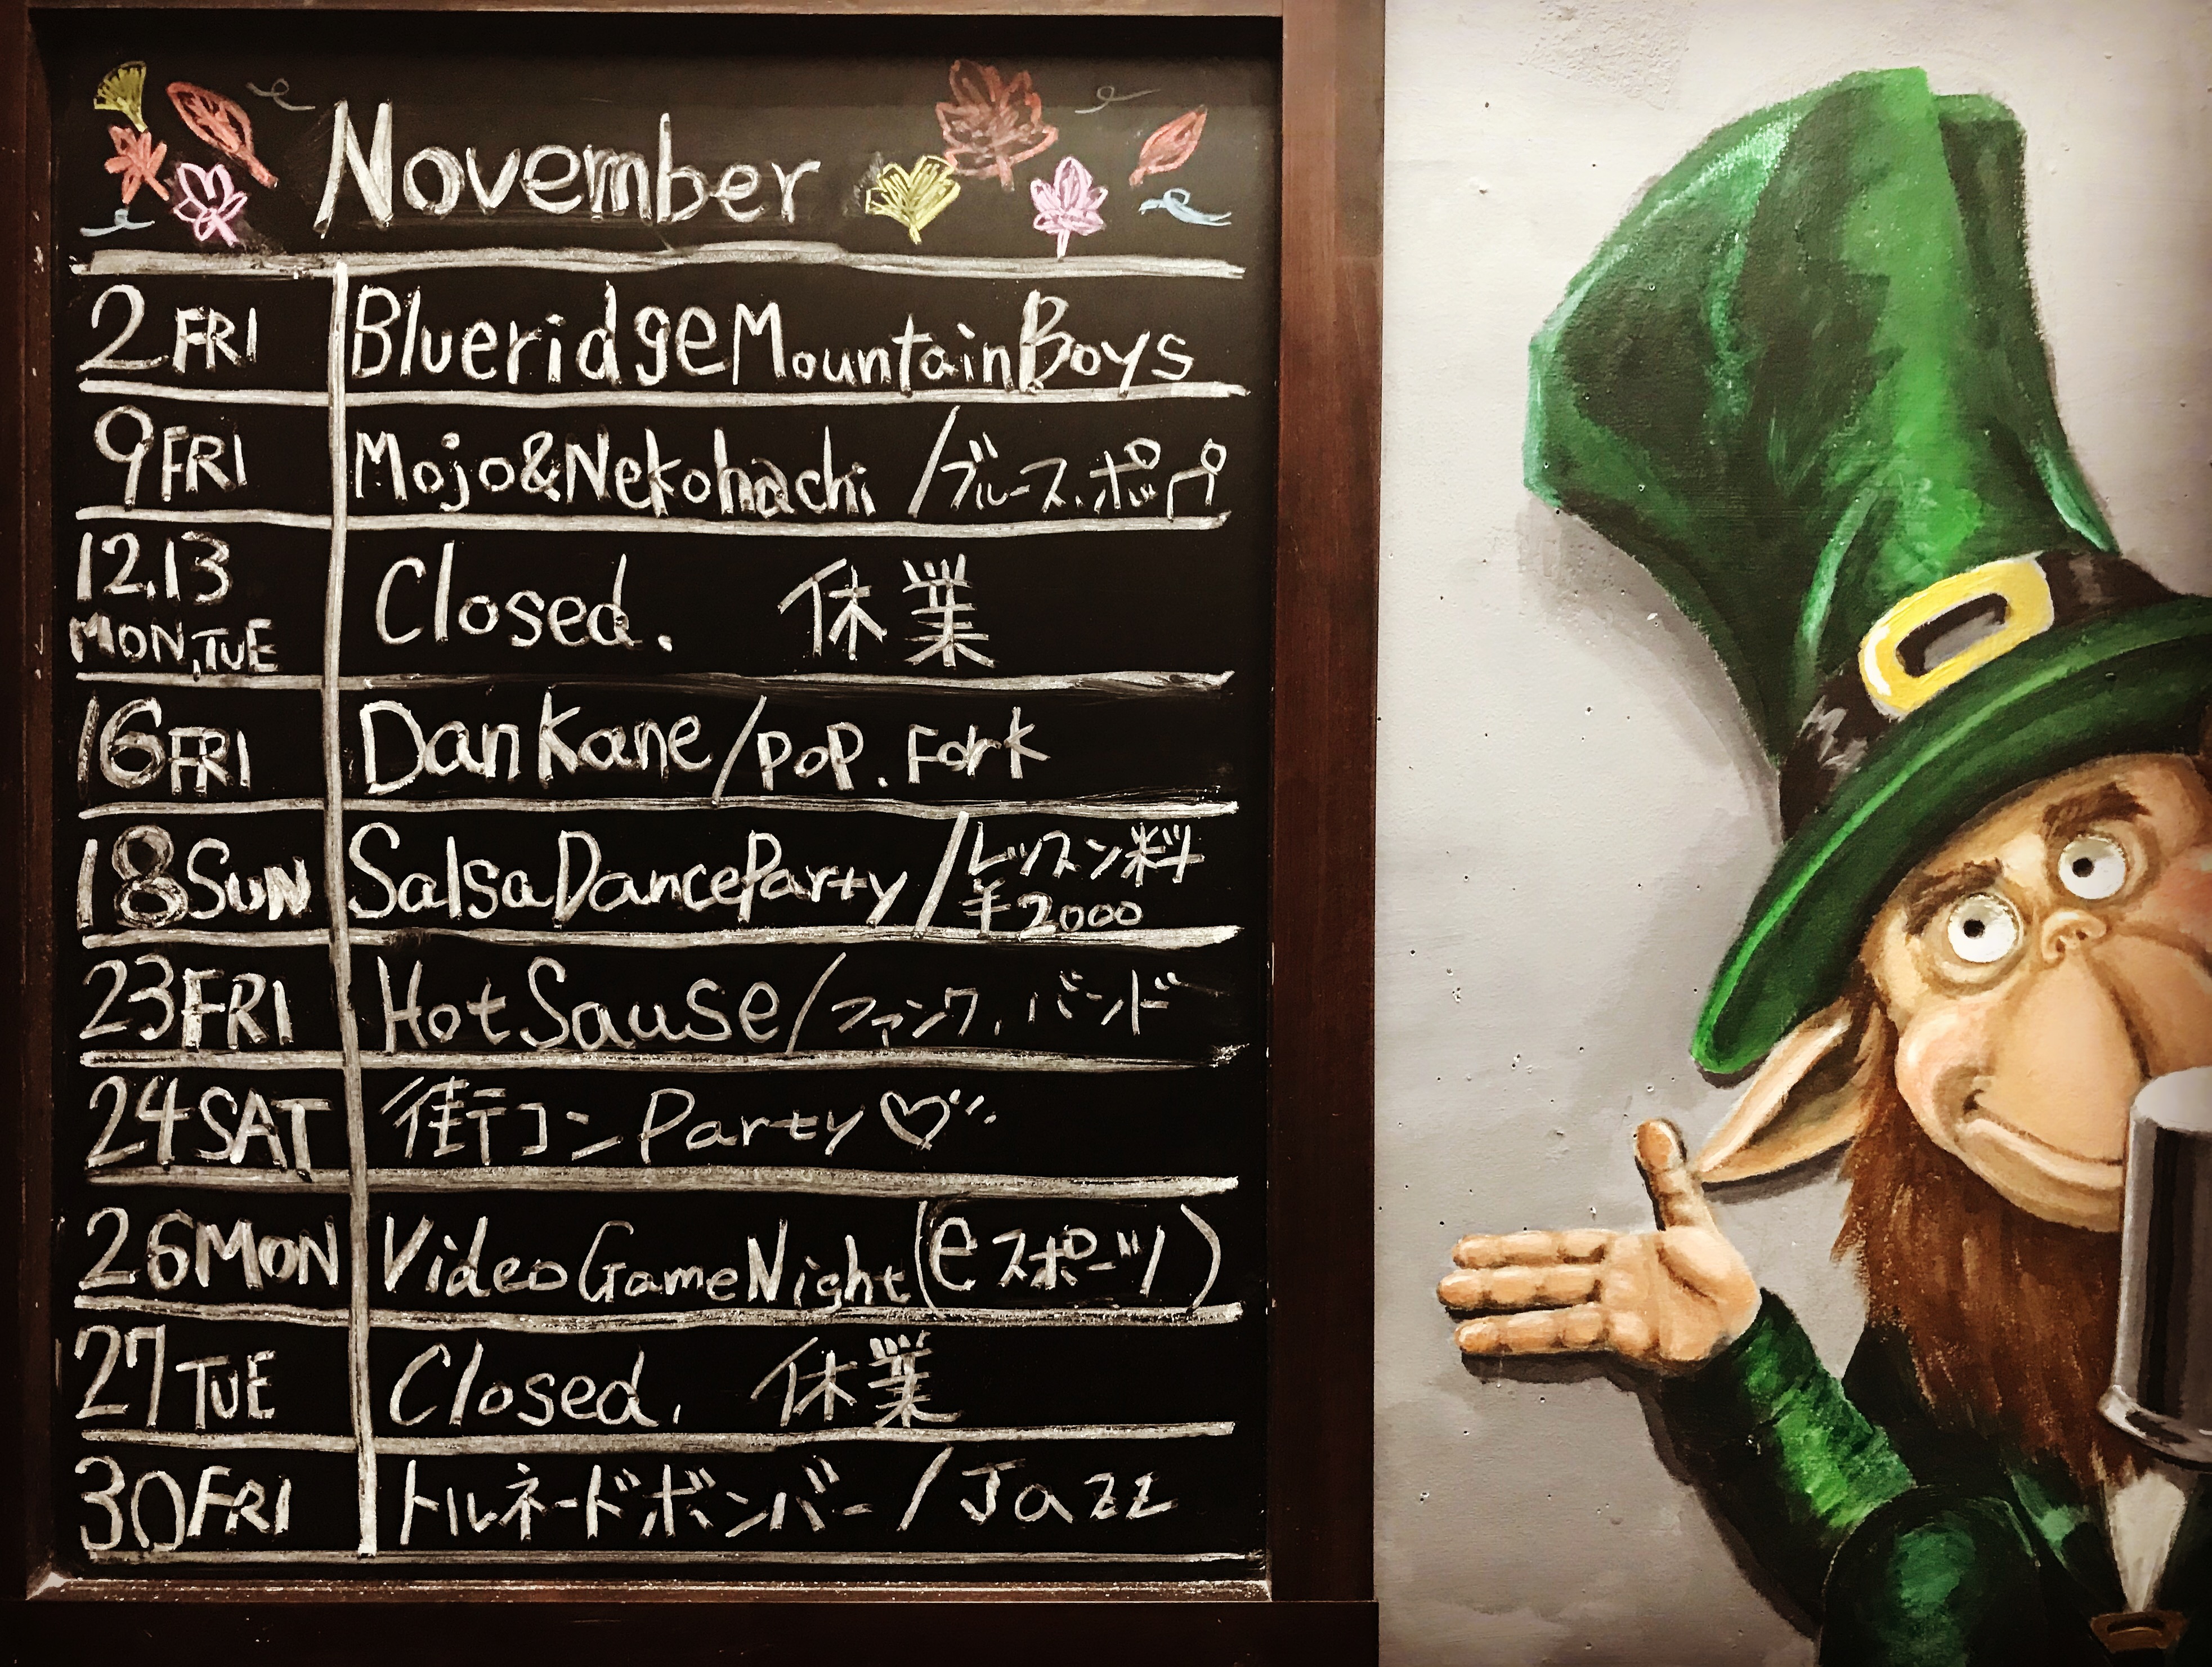 November
2 FRI Blueridge Mountain Boys
9 FRI Mojo&Nekohachi /ブルース.ポップ
12.13 MON,TUE Closed. 休業
16 FRI Dan Kane/POP.Fork
18 SUN Salsa Dance Party/レッスン料 ¥2000
23 FRI Hot Sause/ファンク.バンド
24 SAT 街コン Party♡
26 MON Video Game Night(eスポーツ)
27 TUE Closed. 休業
30 FRI トルネードボンバー/Jazz